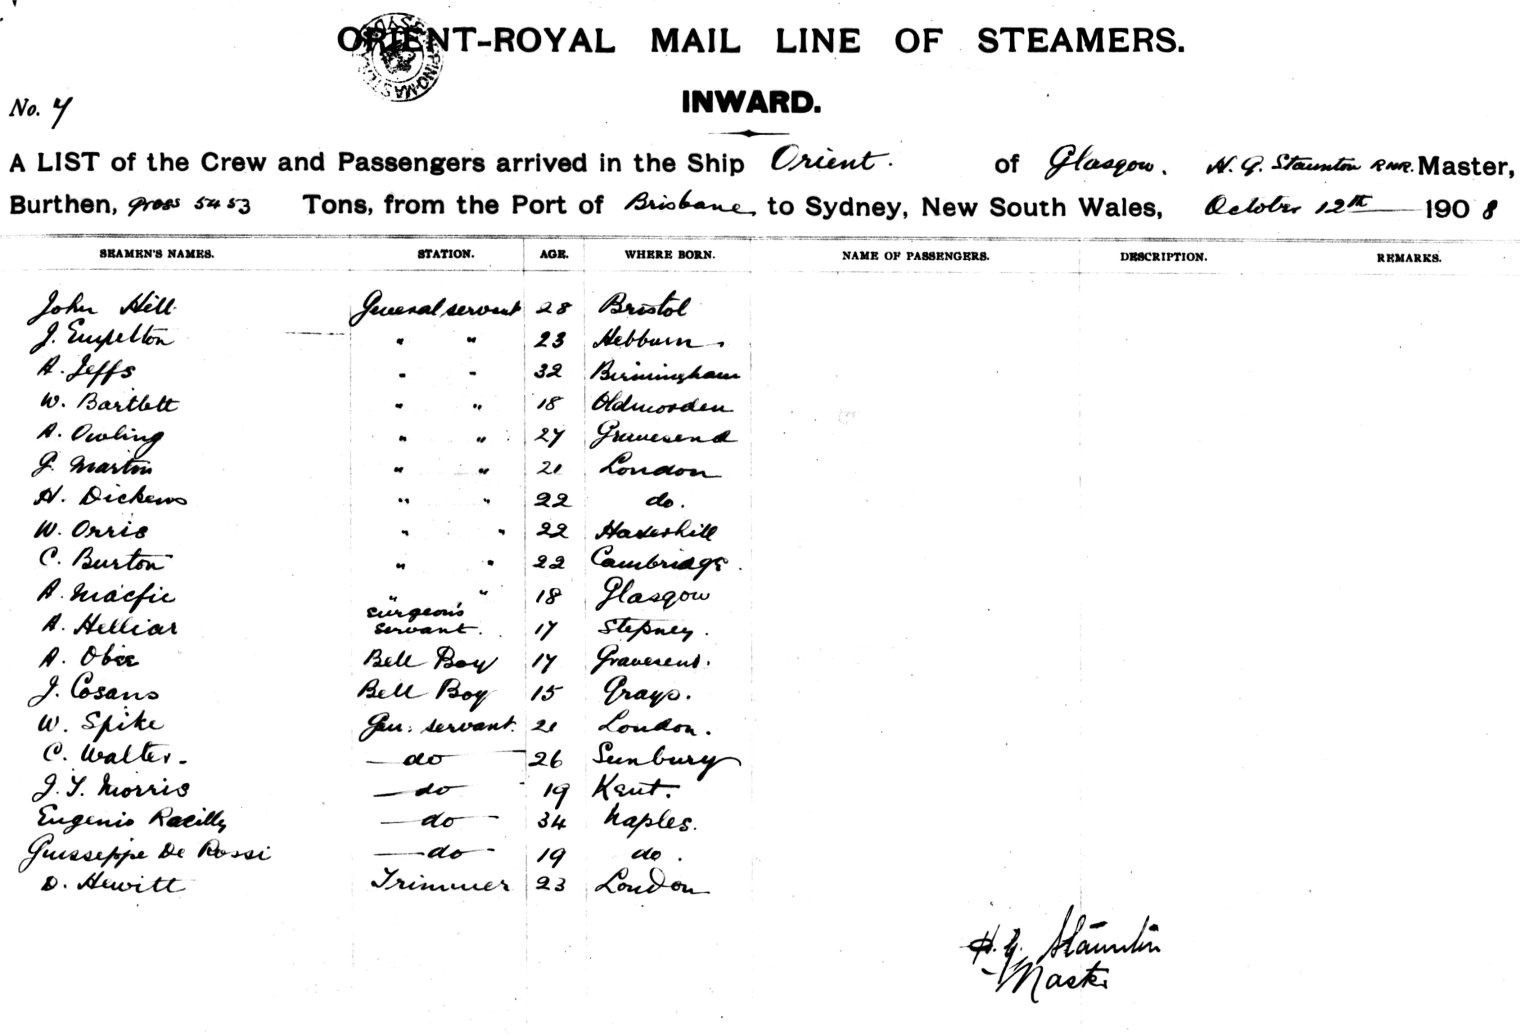 ORIENT-ROYAL MAIL LINE OF STEAMERS.
INWARD.
No. 7
A LIST of the Crew and Passengers arrived in the Ship Orient. of Glasgow. H. G. Staunton RNR. Master,
Burthen, gross 5453 Tons, from the Port of Brisbane, to Sydney, New South Wales, October 12th 1908
SEAMEN'S NAMES. STATION. AGE. WHERE BORN. NAME OF PASSENGERS. DESCRIPTION. REMARKS.
John Hill General servant 28 Bristol
J. Empelton " " 23 Hebburn.
A. Jeffs " " 32 Birmingham
W. Bartlett " " 18 Oldmorden
A. Owling " " 27 Gravesend
G. Martin " " 21 London
H. Dickens " " 22 do.
W. Orris " " 22 Haverhill
C. Burton " " 22 Cambridge.
A. Macfie " " 18 Glasgow
A. Helliar surgeon's servant. 17 Stepney.
A. Obee Bell Boy 17 Gravesend.
J. Cosans Bell Boy 15 Grays.
W. Spike Gen. servant. 21 London.
C. Walter. do 26 Sunbury
J. T. Morris do 19 Kent.
Eugenio Racilly do 34 Naples.
Guisseppe De Rossi do 19 do.
D. Hewitt Trimmer 23 London
H. G. Staunton
Master